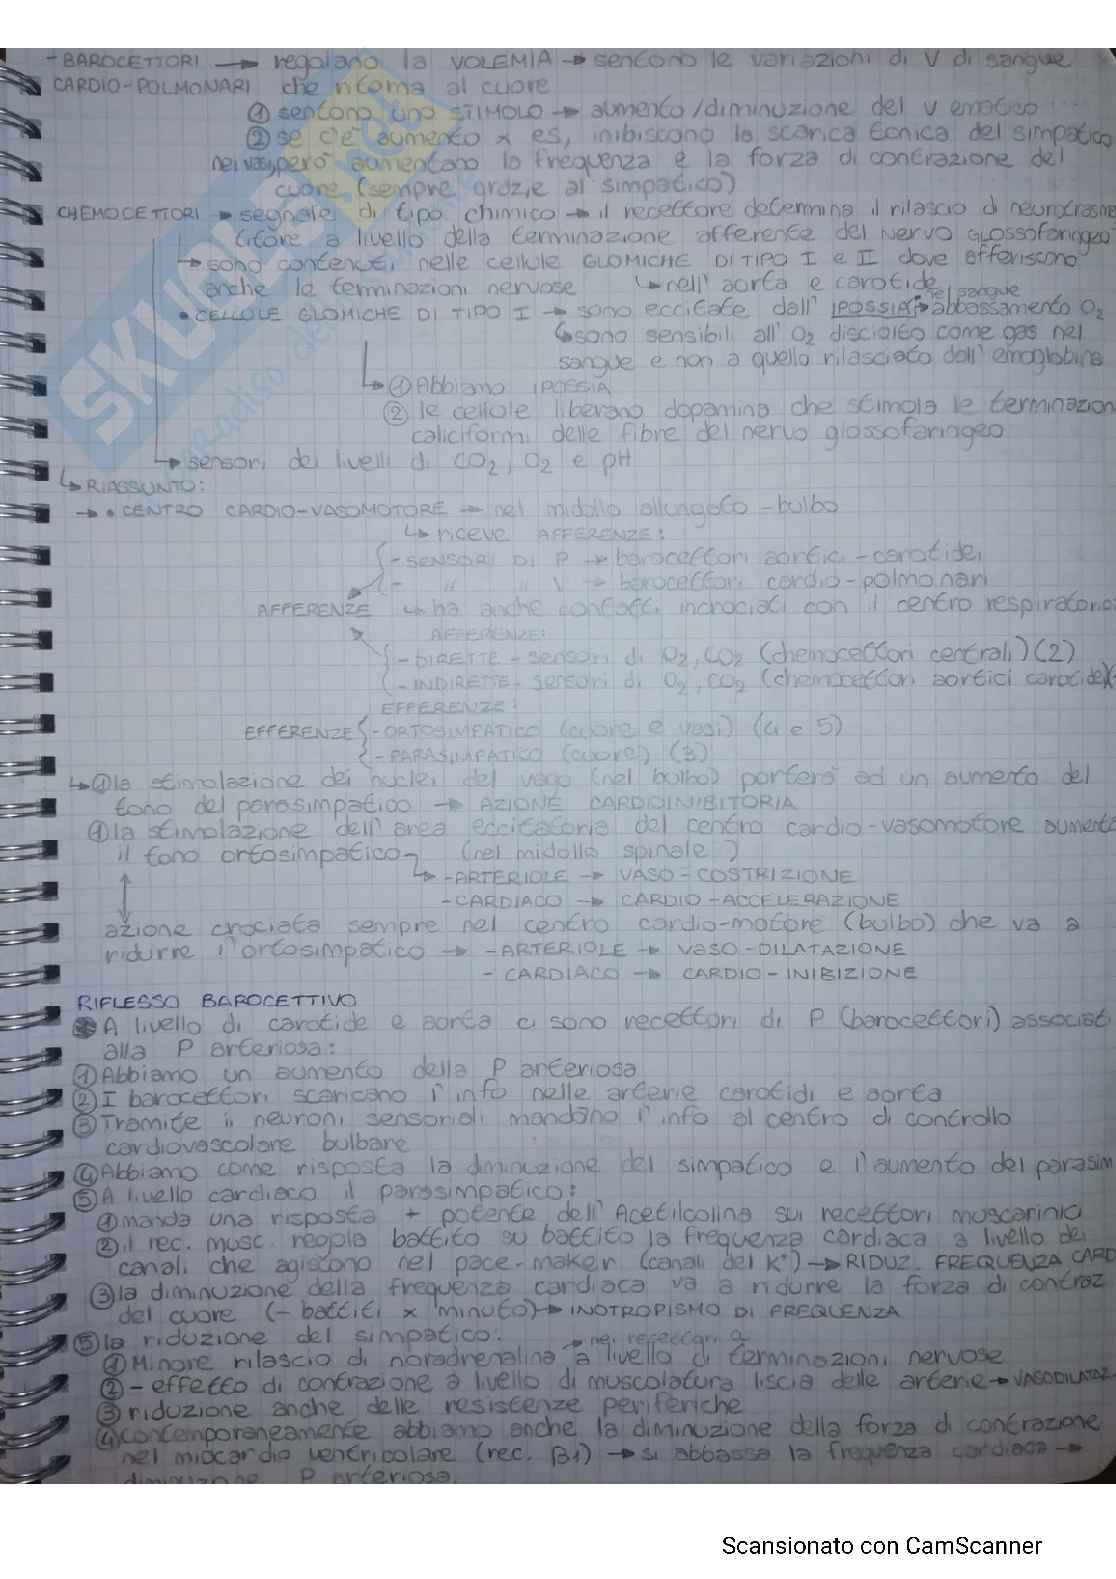 - BAROCETTORI → regolano la VOLEMIA → sentono le variazioni di V di sangue
CARDIO-POLMONARI che ritorna al cuore
① sentono uno STIMOLO → aumento/diminuzione del V ematico
② se c'è aumento x es, inibiscono la scarica tonica del simpatico
nei vasi, però aumentano la frequenza e la forza di contrazione del
cuore (sempre grazie al simpatico)
CHEMOCETTORI → segnale di tipo chimico → il recettore determina il rilascio di neurotrasme
titore a livello della terminazione afferente del NERVO GLOSSOfaringeo
↳ sono contenuti nelle cellule GLOMICHE DI TIPO I e II dove afferiscono
anche le terminazioni nervose ↳ nell' aorta e carotide
• CELLULE GLOMICHE DI TIPO I → sono eccitate dall' IPOSSIA → abbassamento O2 nel sangue
↳ sono sensibili all' O2 disciolto come gas nel
sangue e non a quello rilasciato dall' emoglobina
↳ ① Abbiamo IPOSSIA
② le cellule liberano dopamina che stimola le terminazion
caliciformi delle fibre del nervo glossofaringeo
↳ sensori dei livelli di CO2, O2 e pH
↳ RIASSUNTO:
→ • CENTRO CARDIO-VASOMOTORE → nel midollo allungato - bulbo
↳ riceve AFFERENZE:
- SENSORI DI P → barocettori aortici-carotidei
- " " V → barocettori cardio-polmonari
AFFERENZE ↳ ha anche contatti incrociati con il centro respiratorio:
AFFERENZE:
- DIRETTE - sensori di O2, CO2 (chemocettori centrali) (2)
- INDIRETTE - sensori di O2, CO2 (chemocettori aortici carotidei)
EFFERENZE:
EFFERENZE { - ORTOSIMPATICO (cuore e vasi) (4 e 5)
- PARASIMPATICO (cuore) (3)
↳ ① la stimolazione dei nuclei del vago (nel bulbo) porterà ad un aumento del
tono del parasimpatico → AZIONE CARDIOINIBITORIA
① la stimolazione dell' area eccitatoria del centro cardio-vasomotore aumenta
il tono ortosimpatico (nel midollo spinale)
↳ - ARTERIOLE → VASO-COSTRIZIONE
- CARDIACO → CARDIO-ACCELERAZIONE
azione crociata sempre nel centro cardio-motore (bulbo) che va a
ridurre l'ortosimpatico → - ARTERIOLE → VASO-DILATAZIONE
- CARDIACO → CARDIO-INIBIZIONE
RIFLESSO BAROCETTIVO
A livello di carotide e aorta ci sono recettori di P (barocettori) associati
alla P arteriosa:
① Abbiamo un aumento della P arteriosa
② I barocettori scaricano l'info nelle arterie carotidi e aorta
③ Tramite ii neuroni sensoriali mandano l'info al centro di controllo
cardiovascolare bulbare
④ Abbiamo come risposta la diminuzione del simpatico e l'aumento del parasim
⑤ A livello cardiaco il parasimpatico:
① manda una risposta + potente dell' Acetilcolina sui recettori muscarinici
② il rec. musc. regola battito su battito la frequenza cardiaca a livello dei
canali che agiscono nel pace-maker (canali del K+) → RIDUZ. FREQUENZA CARD
③ la diminuzione della frequenza cardiaca va a ridurre la forza di contraz
del cuore (- battiti x minuto) → INOTROPISMO DI FREQUENZA
⑤ la riduzione del simpatico:
① Minore rilascio di noradrenalina a livello di terminazioni nervose → nei recettori α
② - effetto di contrazione a livello di muscolatura liscia delle arterie → VASODILATAZ.
③ riduzione anche delle resistenze periferiche
④ contemporaneamente abbiamo anche la diminuzione della forza di contrazione
nel miocardio ventricolare (rec. β1) → si abbassa la frequenza cardiaca →
diminuzione P arteriosa.
SKUOLA.net
Scansionato con CamScanner